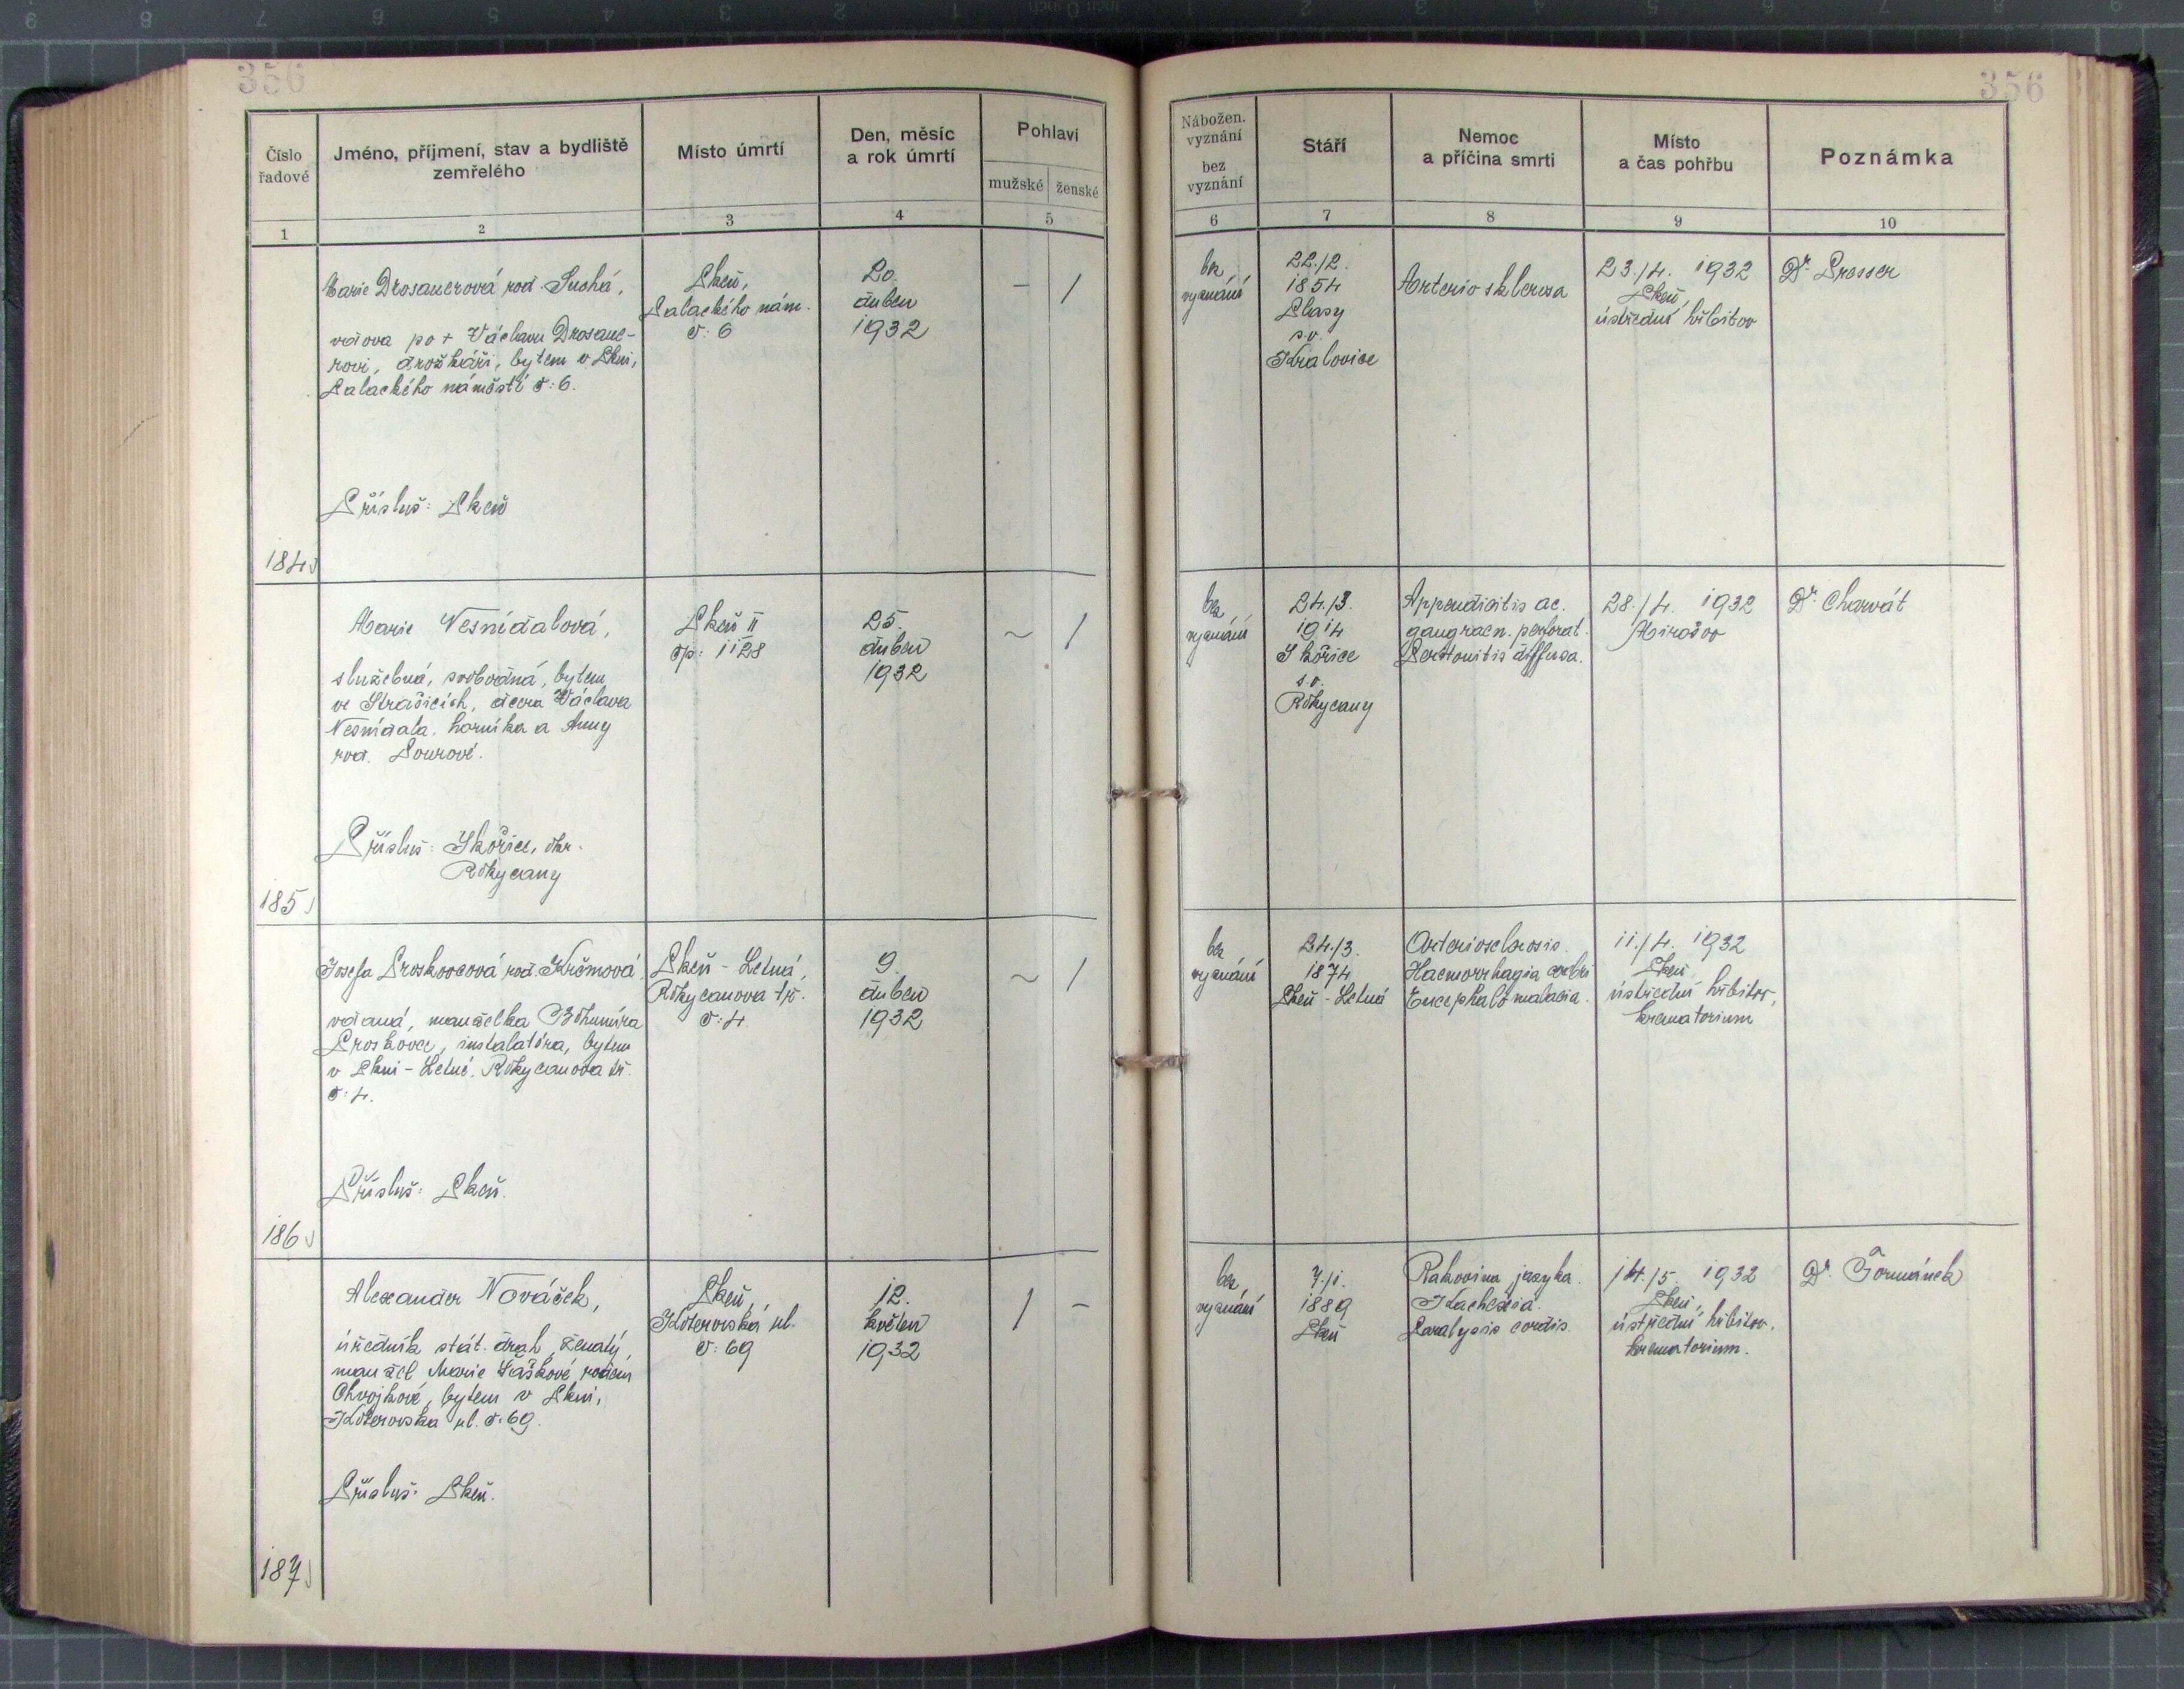 356
356
Číslo řadové
Jméno, příjmení, stav a bydliště zemřelého
Místo úmrtí
Den, měsíc a rok úmrtí
Pohlaví
mužské
ženské
Nábožen. vyznání
bez vyznání
Stáří
Nemoc a příčina smrti
Místo a čas pohřbu
Poznámka
1
2
3
4
5
6
7
8
9
10
184
Marie Drosauerová roz. Suchá,
vdova po + Václavu Drosaue-
rovi, drožkáři, bytem v Plzni,
Palackého náměstí č: 6.
Přísluš: Plzeň
Plzeň,
Palackého nám.
č: 6
20.
duben
1932
- /
bez
vyznání
22./2.
1854
Plasy
s.o.
Kralovice
Arteriosklerosa
23./4. 1932
Plzeň,
ústřední hřbitov
Dr. Presser
185
Marie Nesnídalová,
služebná, svobodná, bytem
ve Strašicích, dcera Václava
Nesnídala, horníka a Anny
roz. Pourové.
Přísluš: Skořice, okr.
Rokycany
Plzeň II
čp: 1128
25.
duben
1932
~ /
bez
vyznání
24./3.
1914
Skořice
s.o.
Rokycany
Appendicitis ac.
gangraen. perforat.
Peritonitis diffusa.
28./4. 1932
Mirošov
Dr. Charvát
186
Josefa Proskovcová roz. Krčmová
vdaná, manželka Bohumíra
Proskovce, instalatéra, bytem
v Plzni - Letné, Rokycanova tř.
č: 4.
Přísluš: Plzeň.
Plzeň - Letná,
Rokycanova tř.
č: 4.
9.
duben
1932
~ /
bez
vyznání
24./3.
1874
Plzeň - Letná
Arteriosclerosis.
Haemorrhagia cerebri
Encephalomalacia.
11./4. 1932
Plzeň
ústřední hřbitov,
krematorium
187
Alexander Nováček,
úředník stát. drah, ženatý,
manžel Marie Laškové, rozené
Chvojkové, bytem v Plzni,
Koterovská ul. č. 69.
Přísluš: Plzeň.
Plzeň,
Koterovská ul.
č: 69
12.
květen
1932
/ -
bez
vyznání
7./1.
1889
Plzeň
Rakovina jazyka.
Kachexia.
Paralysis cordis.
14./5. 1932
Plzeň,
ústřední hřbitov.
krematorium.
Dr. Formánek